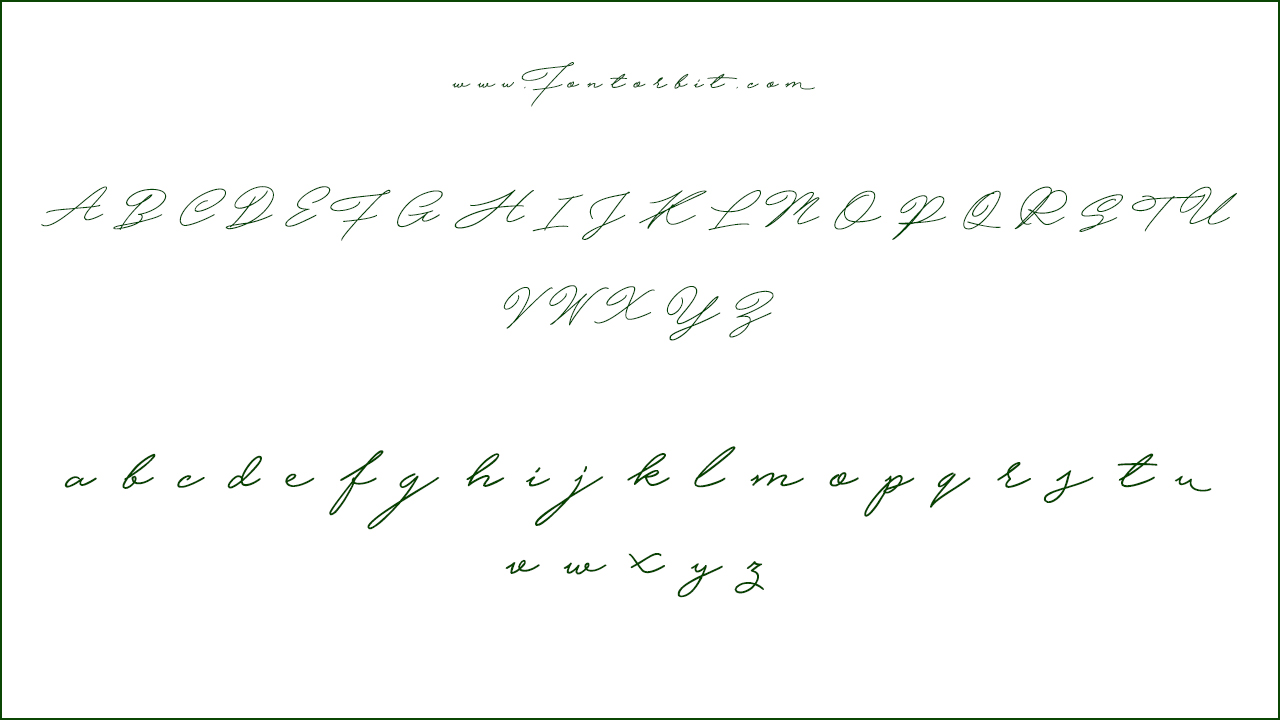 www.Fontorbit.com
A B C D E F G H I J K L M O P Q R S T U
V W X Y Z
a b c d e f g h i j k l m o p q r s t u
v w x y z